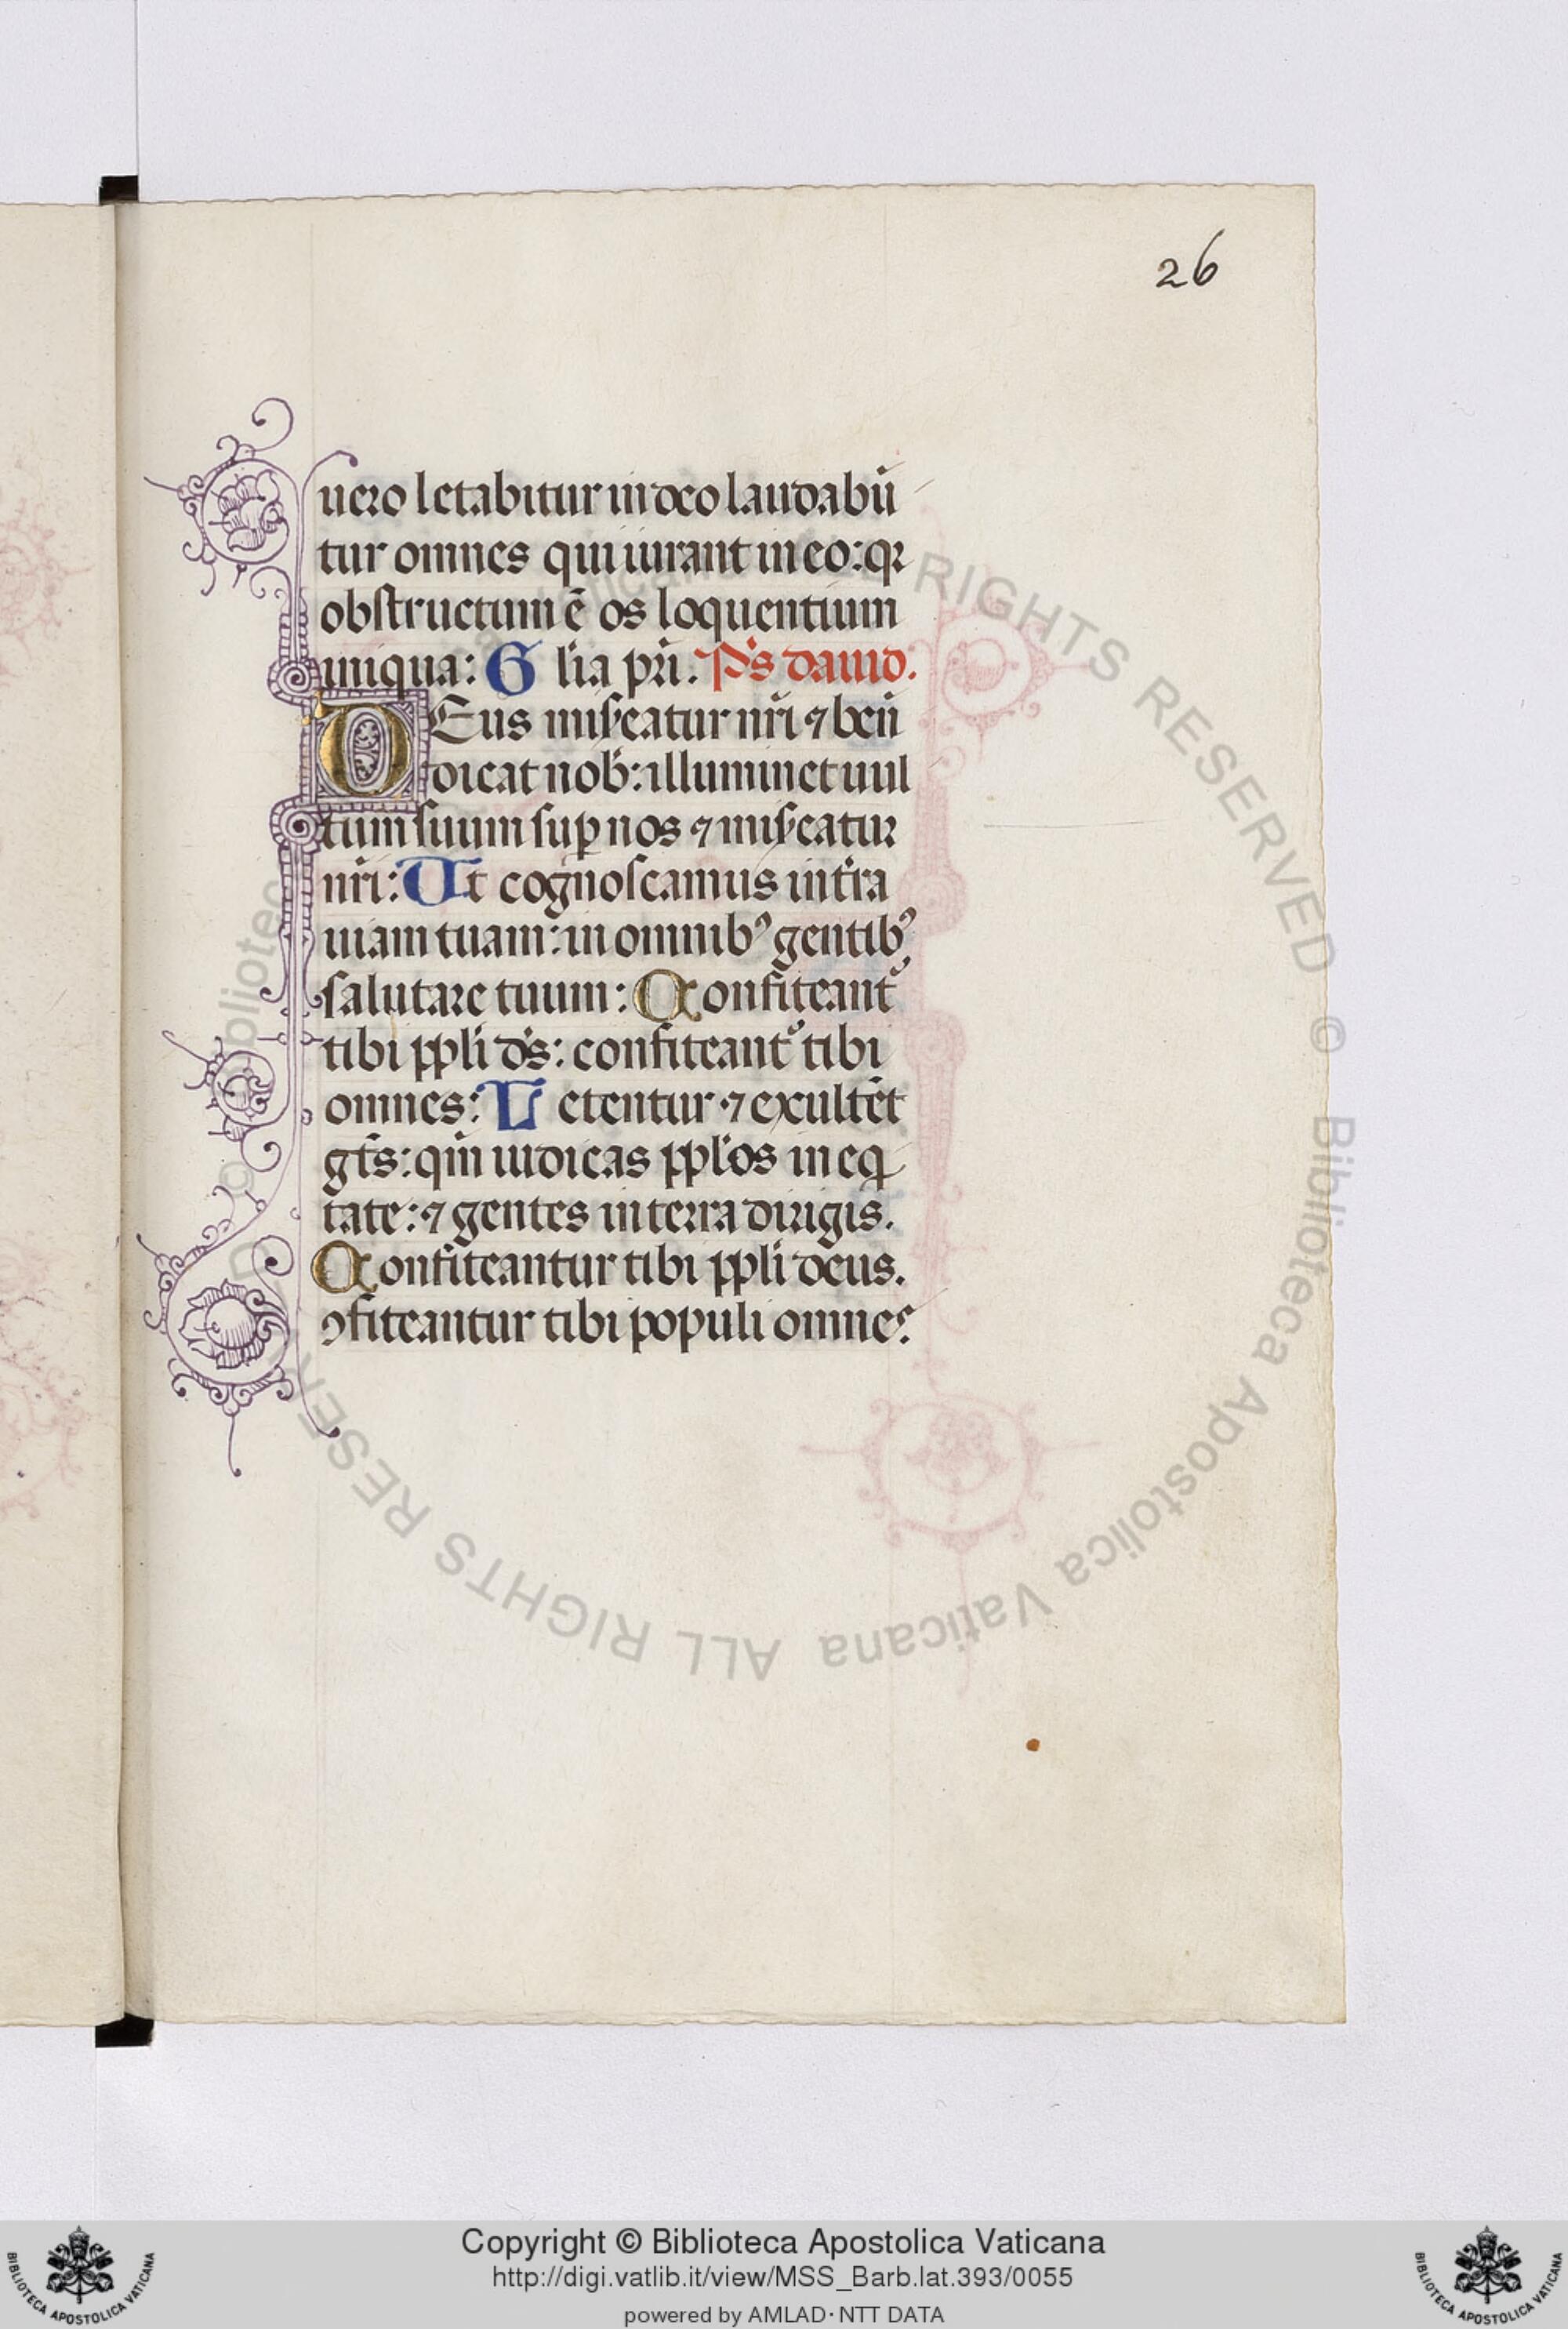 26
uero letabitur in deo laudabū
tur omnes qui iurant in eo: qr
obstructum ē os loquentium
iniqua: G lia pri. Ps dauid.
DEus misˀeatur nri ⁊ ben̄
dicat nob: illuminet uul
tum suum suꝑ nos ⁊ misˀeatur
nri: Ut cognoscamus in tra
uiam tuam: in omnibꝰ gentibꝰ
salutare tuum: Confiteant᷑
tibi ppli ds: confiteant᷑ tibi
omnes: Letentur ⁊ exultēt
gts: qm̄ iudicas pplos in eq
tate: ⁊ gentes in terra dirigis.
Confiteantur tibi ppli deus.
ꝯfiteantur tibi populi omnes:
Copyright © Biblioteca Apostolica Vaticana
http://digi.vatlib.it/view/MSS_Barb.lat.393/0055
powered by AMLAD·NTT DATA
BIBLIOTECA APOSTOLICA VATICANA
BIBLIOTECA APOSTOLICA VATICANA
© Biblioteca Apostolica Vaticana ALL RIGHTS RESERVED